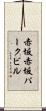 赤坂赤坂パークビル